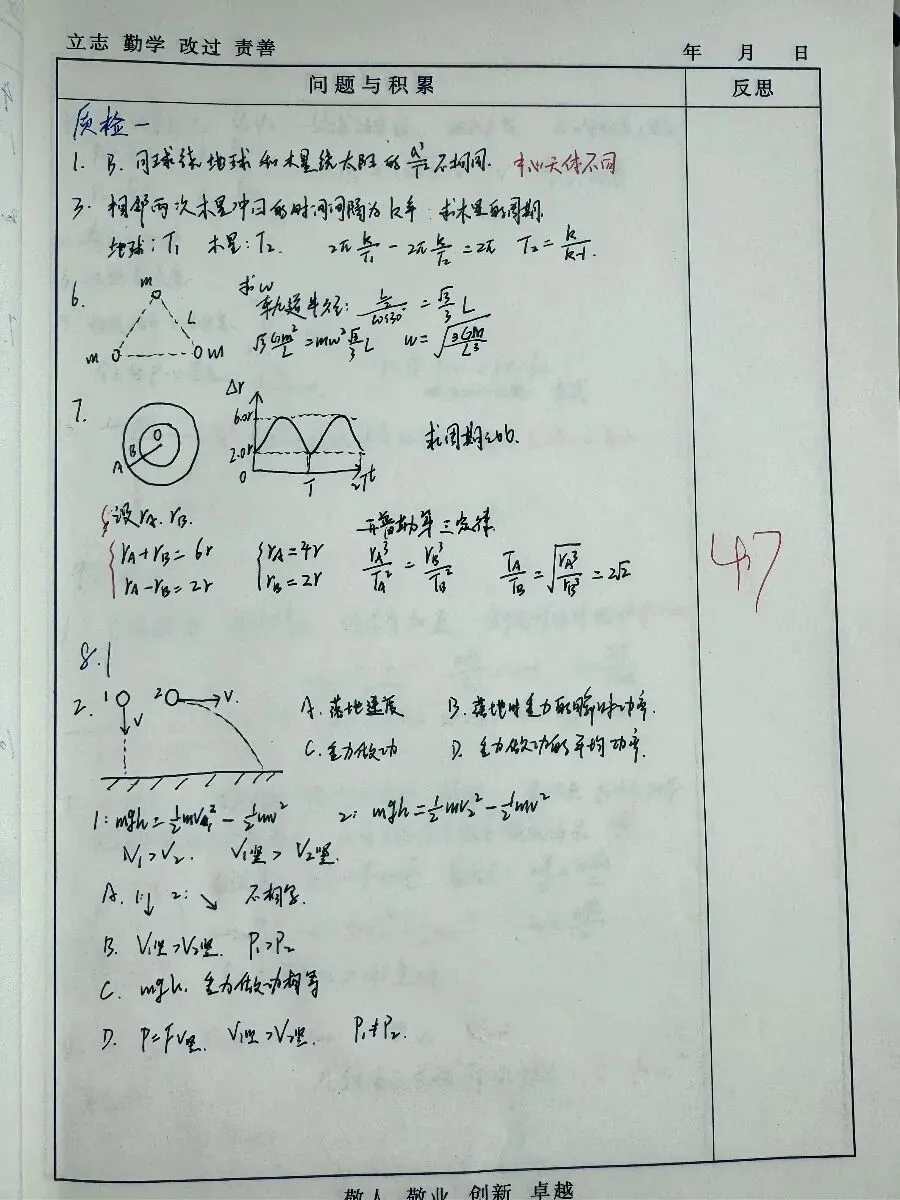 立志 勤学 改过 责善
年 月 日
问题与积累
反思
质检一
1. B. 月球绕地球和木星绕太阳的 a³/T² 不相同. 中心天体不同
3. 相邻两次木星冲日的时间间隔为k年. 求木星的周期.
地球:T₁ 木星:T₂. 2π k/T₁ - 2π k/T₂ = 2π T₂ = k/(k-1).
6. 求w
m L m m
轨道半径: (L/2)/cos30° = √3/3 L
√3 Gm²/L² = mw² √3/3 L w = √(3GM/L³)
7. A B O
Δr 6.0r 2.0r 0 T 2T t
求周期之比.
设 rA. rB. 开普勒第三定律
rA + rB = 6r rA = 4r rA³/TA² = rB³/TB² TA/TB = √(rA³/rB³) = 2√2
rA - rB = 2r rB = 2r
4.7
8.1
2. 1 V 2 V.
A. 落地速度 B. 落地时重力的瞬时功率.
C. 重力做功 D. 重力做功的平均功率.
1: mgh = ½mv₁² - ½mv² 2: mgh = ½mv₂² - ½mv²
V₁ > V₂. V₁竖 > V₂竖.
A. 1:↓ 2: ↘ 不相等.
B. V₁竖 > V₂竖. P₁ > P₂
C. mgh. 重力做功相等
D. P = FV竖. V₁竖 > V₂竖. P₁ ≠ P₂.
敬人 敬业 创新 卓越